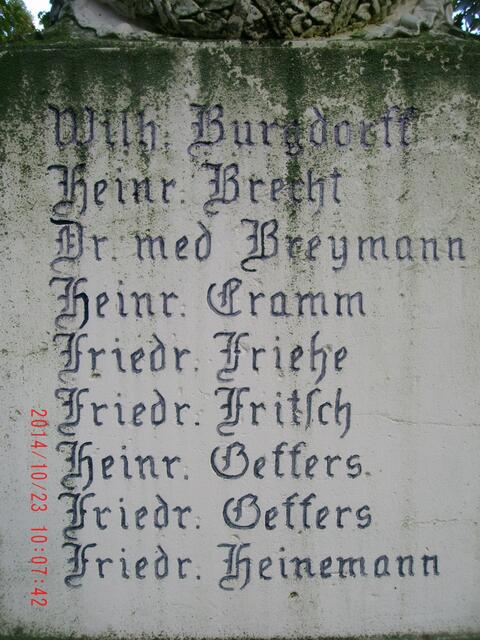 Wilh. Burgdorff
Heinr. Brecht
Dr. med Breymann
Heinr. Cramm
Friedr. Friehe
Friedr. Fritsch
Heinr. Geffers.
Friedr. Geffers
Friedr. Heinemann
2014/10/23 10:07:42